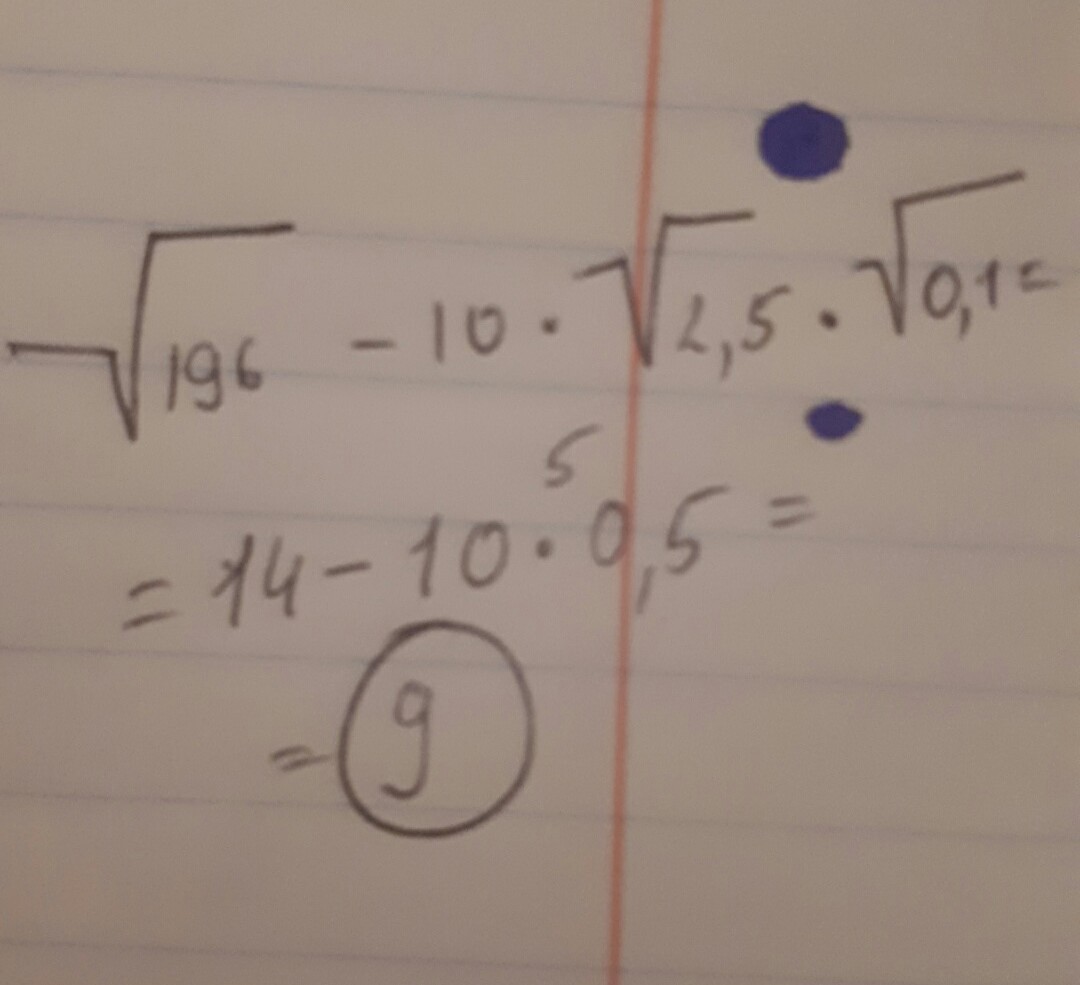 √196 - 10 · √2,5 · √0,1 =
5
= 14 - 10 · 0,5 =
= 9